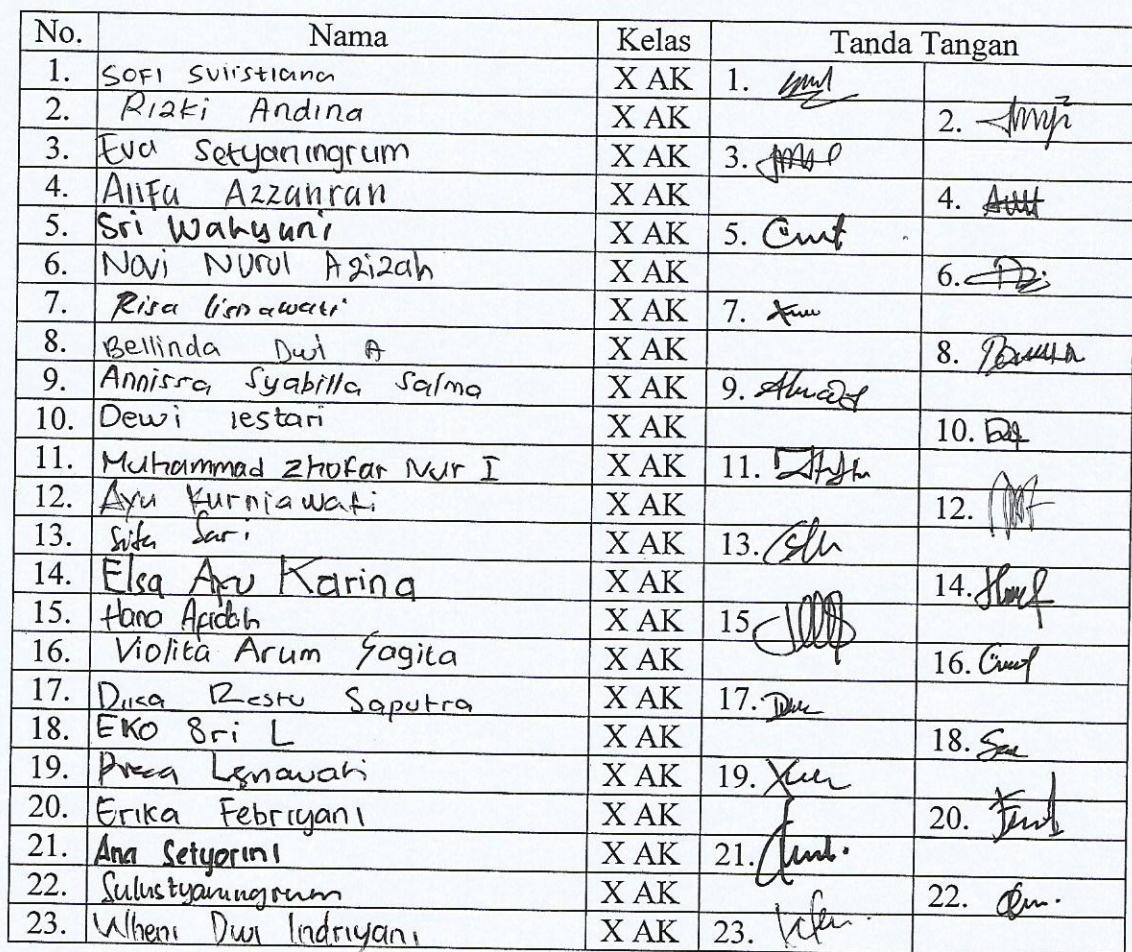 No. Nama Kelas Tanda Tangan
1. Sofi Sulistiana X AK 1.
2. Rizki Andina X AK 2.
3. Eva Setyaningrum X AK 3.
4. Alifa Azzahran X AK 4.
5. Sri Wahyuni X AK 5.
6. Novi Nurul Azizah X AK 6.
7. Risa lisnawati X AK 7.
8. Bellinda Dwi A X AK 8.
9. Annissa Syabilla Salma X AK 9.
10. Dewi lestari X AK 10.
11. Muhammad Zhofar Nur I X AK 11.
12. Ayu Kurniawati X AK 12.
13. Sari X AK 13.
14. Elsa Ayu Karina X AK 14.
15. Hana Afidah X AK 15
16. Violita Arum Sagita X AK 16.
17. Restu Saputra X AK 17.
18. EKO Sri L X AK 18.
19. X AK 19.
20. Erika Febriyani X AK 20.
21. Ana Setyorini X AK 21.
22. Sulustyaningrum X AK 22.
23. Wheni Dwi Indriyani X AK 23.